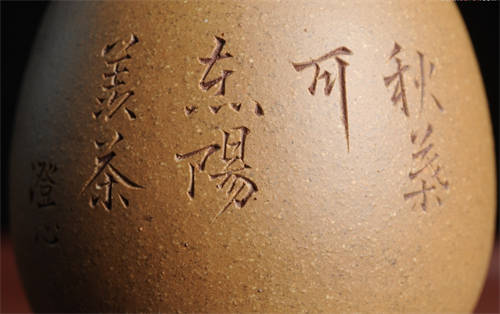 秋葉
可
煮陽
羨茶
澄心